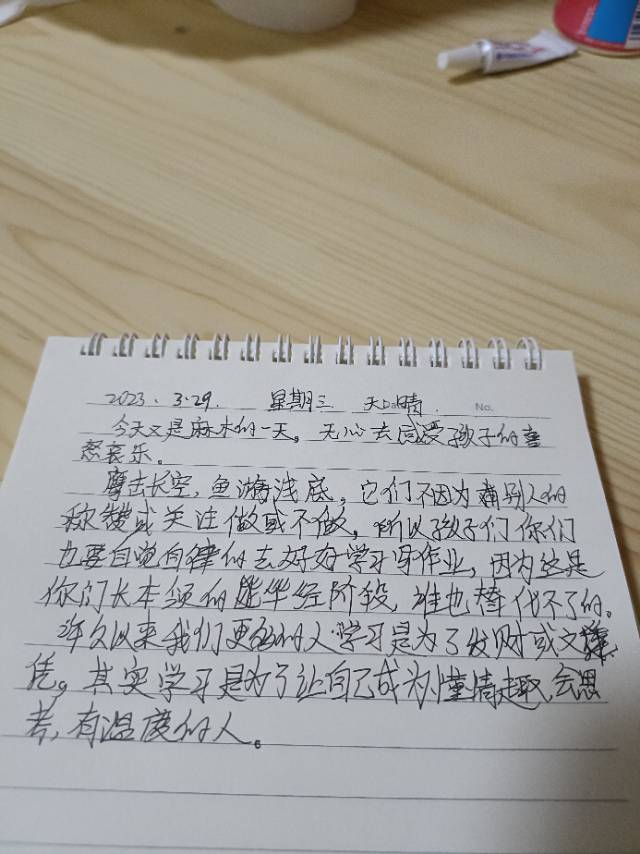 2023.3.29. 星期三 天 晴. No.
今天又是麻木的一天。无心去感受孩子的喜
怒哀乐。
鹰击长空,鱼游浅底,它们不因为有别人的
称赞或关注做或不做,所以孩子们你们
也要自觉自律的去好好学习写作业,因为这是
你们长本领的 经阶段,谁也替代不了的。
许久以来我们更多的人学习是为了发财或文
凭。其实学习是为了让自己成为懂情趣、会思
考,有温度的人。